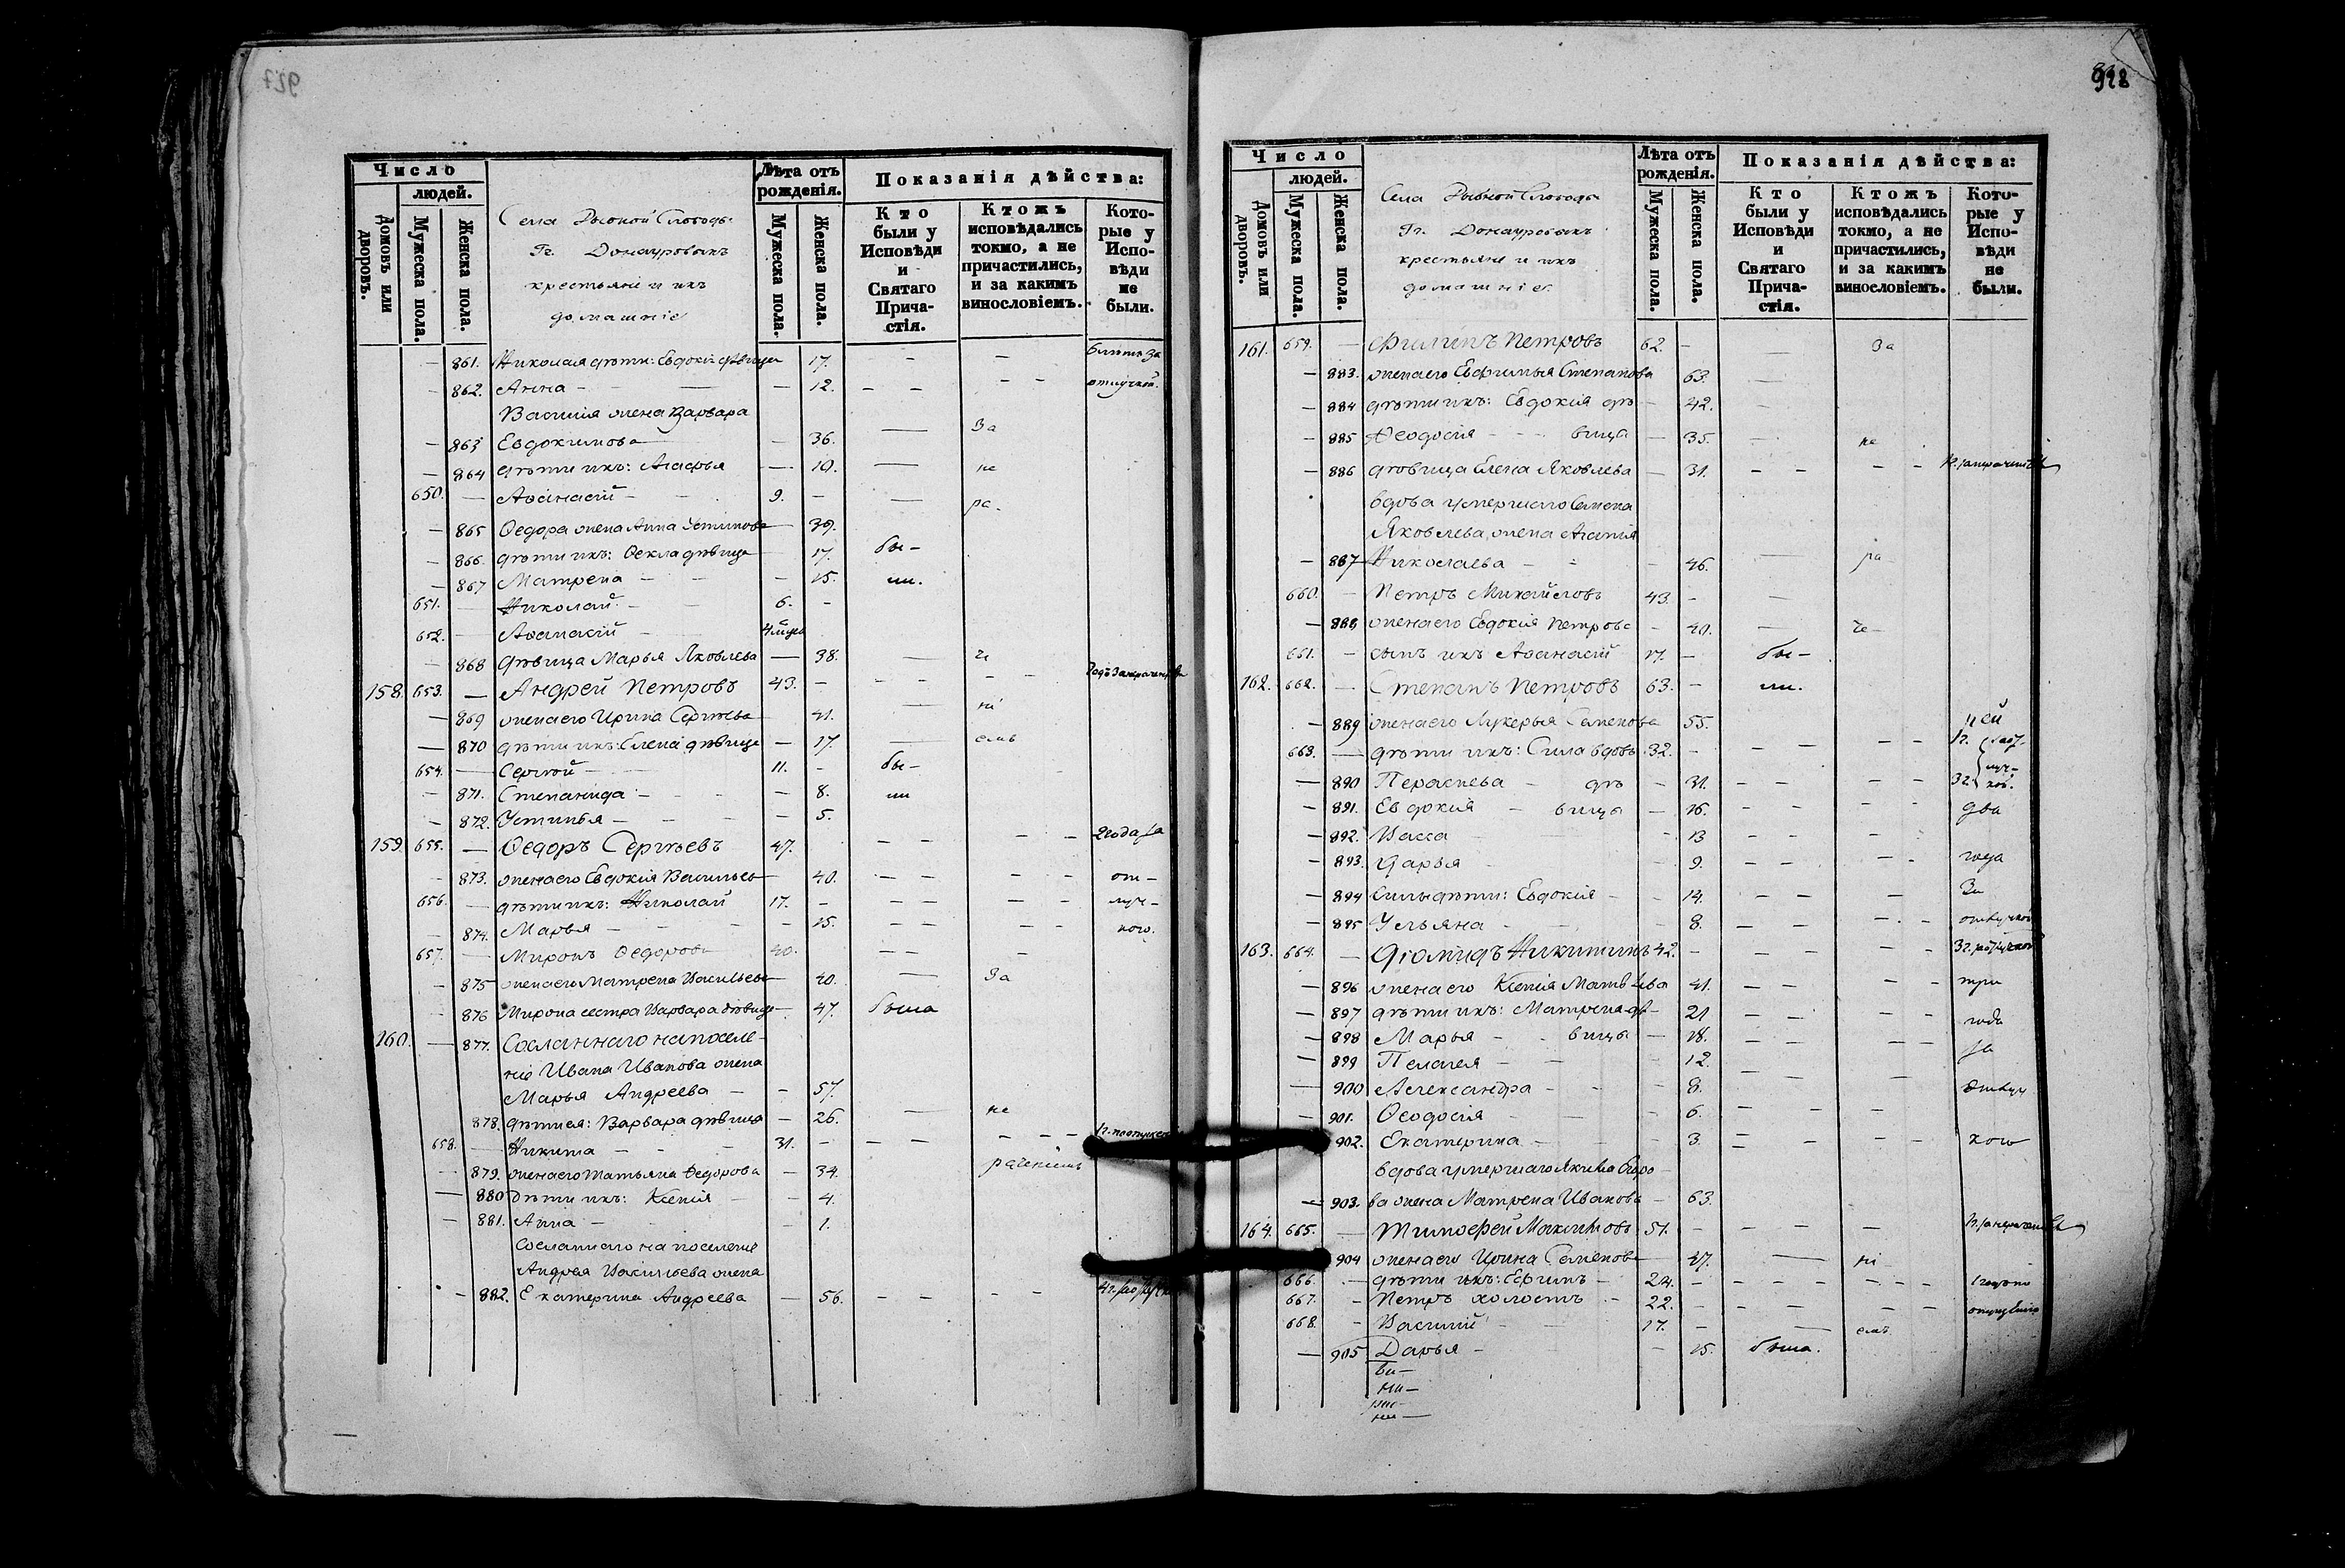 927
Число
людей.
Домовъ или дворовъ.
Мужеска пола.
Женска пола.
Села Рыбной Слободы
Гг. Донауровыхъ
крестьяне и ихъ
домашніе
Лѣта отъ рожденія.
Мужеска пола.
Женска пола.
Показанія дѣйства:
Кто были у Исповѣди и Святаго Прича-стія.
Ктожъ исповѣдались токмо, а не причастились, и за какимъ винословіемъ.
Кото-рые у Испо-вѣди не были.
— 861. Николая дѣти: Евдокія дѣвица 17. — —
— 862. Анна — — 12. — — — — отлучкой.
Василія жена Варвара
— 863 Евдокимова — 36. — За
— 864 дѣти ихъ: Агафья — 10. — не
650. — Аѳанасій — 9. — — ра-
— 865 Ѳедора жена Анна Устинова — 39.
— 866. дѣти ихъ: Ѳекла дѣвица 17. бы-
— 867 Матрена — — 15. ли.
651. — Николай — 6. —
652. — Аѳанасій — 4
— 868 дѣвица Марья Яковлева — 38. — че
158. 653. — Андрей Петровъ 43. — — — — —
— 869 жена его Ирина Сергѣева 41. — ні
— 870 дѣти ихъ: Елена дѣвица — 17. — емъ
654. — Сергѣй — 11. — бы-
— 871. Степанида — — 8. ли
— 872. Устинья — — 5.
159. 655. — Ѳедоръ Сергѣевъ 47. — — — — 2 года за
— 873. жена его Евдокія Васильева 40. — — — — от-
656. — дѣти ихъ: Николай 17. — — — — — луч-
— 874. Марья — — 15. — — — — кою.
657. — Миронъ Ѳедоровъ 40. — — —
— 875 жена его Матрена Васильева 40. — За
— 876 Мирона сестра Варвара дѣвица — 47. была
160. — 877. Сосланнаго на поселе-
ніе Ивана Иванова жена
Марья Андреева — — 57.
878. дѣти ея: Варвара дѣвица — 26. — не
658. — Никита — 31. — — — — — —
— 879. жена его Татьяна Ѳедорова — 34. раченіемъ
— 880 дѣти ихъ: Ксенія — — 4.
— 881. Анна — — 1.
Сосланнаго на поселеніе
Андрея Васильева жена
— 882. Екатерина Андреева — 56. — — — —
928
Число
людей.
Домовъ или дворовъ.
Мужеска пола.
Женска пола.
Села Рыбной Слободы
Гг. Донауровыхъ
крестьяне и ихъ
домашніе
Лѣта отъ рожденія.
Мужеска пола.
Женска пола.
Показанія дѣйства:
Кто были у Исповѣди и Святаго Прича-стія.
Ктожъ исповѣдались токмо, а не причастились, и за какимъ винословіемъ.
Кото-рые у Испо-вѣди не были.
161. 659. — Филипъ Петровъ 62. — — За
— 883. жена его Евфимья Степанова 63. —
— 884 дѣти ихъ: Евдокія дѣ — 42. —
— 885 Ѳеодосія — — вица — 35. — не
— 886 дѣвица Елена Яковлева — 31. — — — —
вдова умершаго Семена
Яковлева, жена Агапія
— 887 Николаева — — 46. — ра
660. — Петръ Михайловъ 43. — —
— 888 жена его Евдокія Петрова — 40. — че-
661. — сынъ ихъ Аѳанасій 17. — бы-
162. 662. — Степанъ Петровъ 63. — ли.
— 889 жена его Лукерья Семенова 55.
663. — дѣти ихъ: Сила вдовъ 32. — — — — —
— 890 Параскева — дѣ — 31. — — — —
— 891. Евдокія — вицы — 16. — — — — два
— 892. Васса — — 13 — — — —
— 893. Дарья — — 9. — — — — года
— 894 Силы дѣти: Евдокія — — 14. — — — За
— 895 Ульяна — — 8. — — — — отлучкой
163. 664. — Діомидъ Никитинъ 42. — — — — —
— 896 жена его Ксенія Матвѣева 41. — — — — три
— 897 дѣти ихъ: Матрена дѣ- 21 — — — — года
— 898 Марья — — вицы — 18. — — — — за
— 899 Пелагея — — 12.
— 900 Александра — — 8. — — — отлуч
— 901. Ѳеодосія — — 6. — — —
902. Екатерина — — 3. — — — — кою
вдова умершаго Якима
— 903. ва жена Матрена Иванова — 63.
164. 665. — Тимофей Максимовъ 51. — — — —
904 жена его Ирина Семенова 47. — ні
666. — дѣти ихъ: Ефимъ — 24. — — — — — —
667. — Петръ холостъ — 22. — — — — —
668. — Василій — 17. — — емъ.
— 905 Дарья — — 15. была.